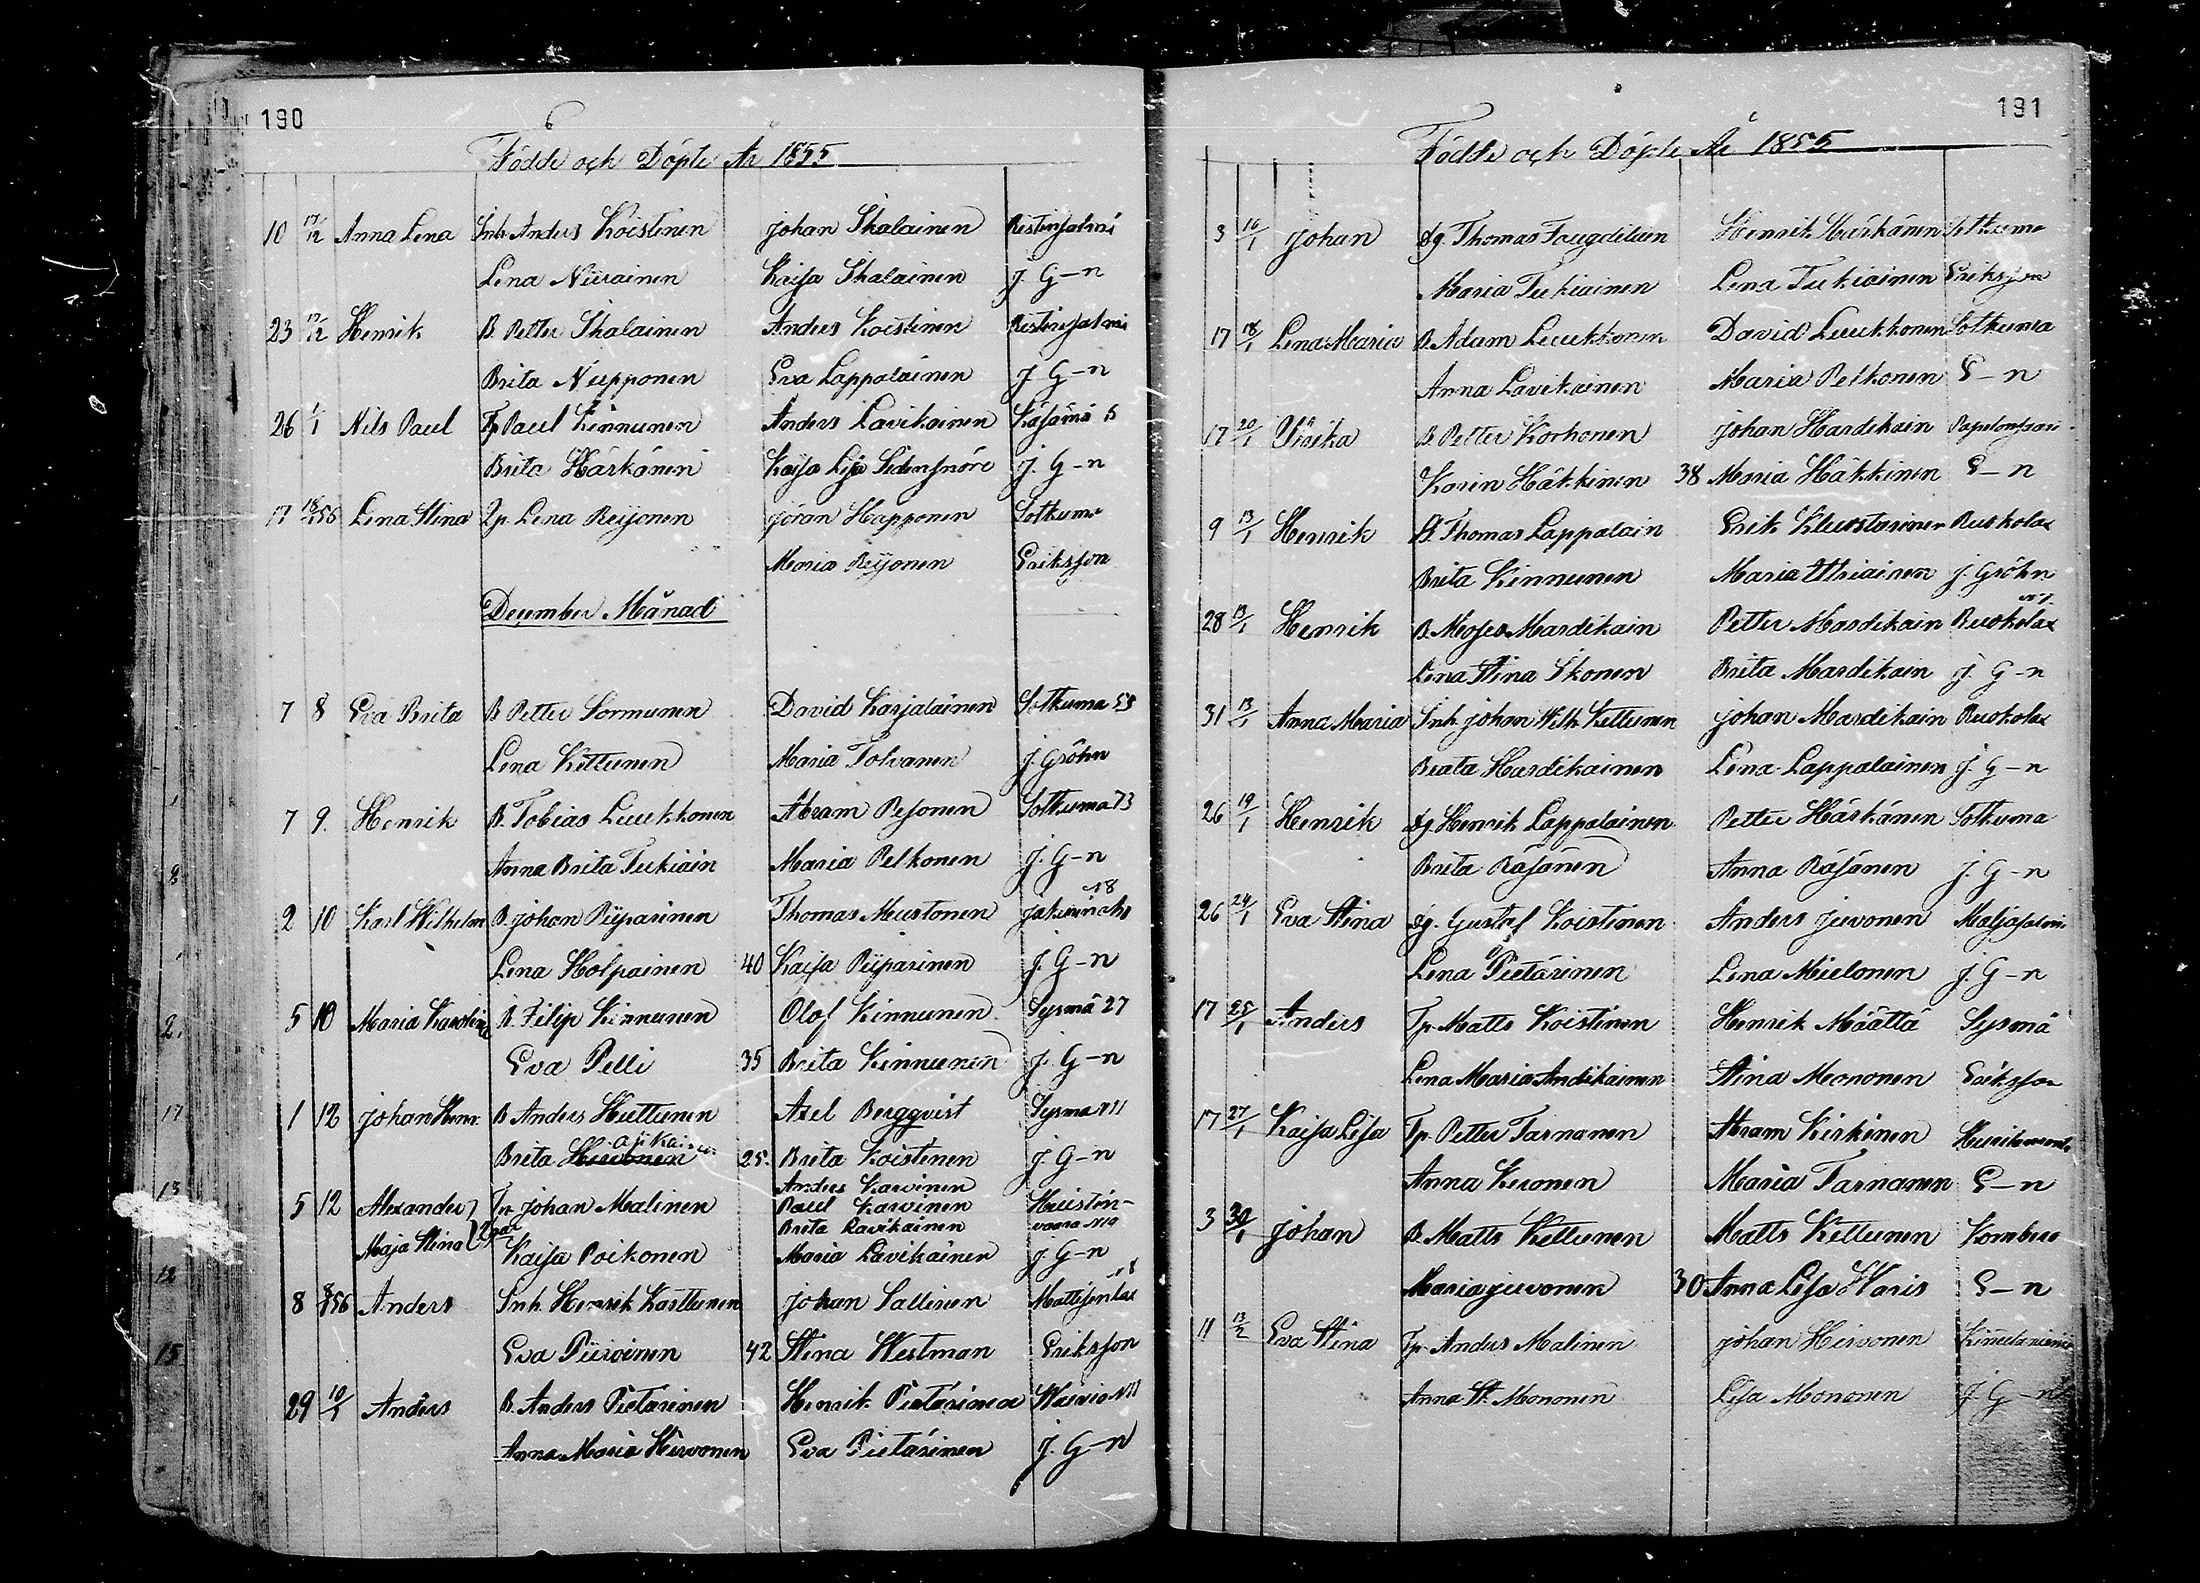 190
Födde och Döpte År 1855
10 17/12 Anna Lena Inh. Anders Koistinen Johan Ihalainen Ristinsalmi
Lena Niiranen Kaisa Ihalainen J. G-n
23 17/12 Henrik B. Petter Ihalainen Anders Koistinen Ristinsalmi
Brita Nupponen Eva Lappalainen J. G-n
26 1/1 Nils Paul Tp Paul Kinnunen Anders Lavikainen Käsämä 5
Brita Härkönen Kaisa Lisa J. G-n
17 18/1 56 Lena Stina Lena Reijonen Jöran Happonen Sotkuma
Maria Reijonen Eriksson
December Månad
7 8 Eva Brita B Petter Sormunen David Karjalainen Sotkuma 53
Lena Kettunen Maria Tolvanen J. Gröhn
7 9. Henrik B. Tobias Luukkonen Abram Pesonen Sotkuma 73
Anna Brita Tukiain Maria Pelkonen J. G-n
2 10 Karl Wilhelm B. Johan Piiparinen Thomas Mustonen N8
Lena Holpainen 40 Kaisa Piiparinen J. G-n
5 10 Maria Karolina B. Filip Kinnunen Olof Kinnunen Sysmä 27
Eva Pelli 35 Brita Kinnunen J. G-n
1 12 Johan Henr. B. Anders Huttunen Axel Bergqvist Sysmä N11
Brita 25. Brita Koistinen J. G-n
Anders Karvinen
5 12 Alexander Johan Malinen Paul Karvinen
Brita Ravikainen
Maja Stina Kaisa Poikonen Maria Lavikainen J. G-n
8 56 Anders Inh. Henrik Karttunen Johan Sallinen
Eva Piiroinen 42 Stina Westman Eriksson
29 10/1 Anders B. Anders Pietarinen Henrik Pietarinen N11
Anna Maria Hirvonen Eva Pietarinen J. G-n
191
Födde och Döpte År 1855
3 16/1 Johan Thomas Henrik Härkönen Sotkuma
Maria Tukiainen Lena Tukiainen Eriksson
17 18/1 Lena Maria B. Adam Luukkonen David Luukkonen Sotkuma
Anna Lavikainen Maria Pelkonen E-n
17 20/1 Ulrika B. Petter Korhonen Johan Hardikain
Karin Häkkinen 38 Maria Häkkinen E-n
9 13/1 Henrik B. Thomas Lappalain Erik Ruokolax
Brita Kinnunen Maria Utriainen J. Gröhn
28 13/1 Henrik B. Moses Mardikain Petter Mardikain Ruokolax
Lena Stina Ikonen Brita Mardikain J. G-n
31 13/1 Anna Maria Inh. Johan Wilh. Kettunen Johan Mardikain Ruokolax
Beata Hardikainen Lena Lappalainen J. G-n
26 19/1 Henrik Henrik Lappalainen Petter Härkönen Sotkuma
Brita Räsänen Anna Räsänen J. G-n
26 24/1 Eva Stina Gustaf Koistinen Anders Juvonen Maljasalmi
Lena Pietarinen Lena Mielonen J. G-n
17 25/1 Anders Tp. Matts Koistinen Henrik Määttä Sysmä
Lena Maria Andikainen Stina Mononen Eriksson
17 27/1 Kaisa Lisa Tp. Petter Tarnanen Abram Kirkinen
Anna Kuronen Maria Tarnanen E-n
3 30/1 Johan B. Matts Kettunen Matts Kettunen Kombero
Maria Juvonen 30 Anna Lisa Waris E-n
11 13/2 Eva Stina Tp. Anders Malinen Johan Hirvonen
Anna St. Mononen Lisa Mononen J. G-n